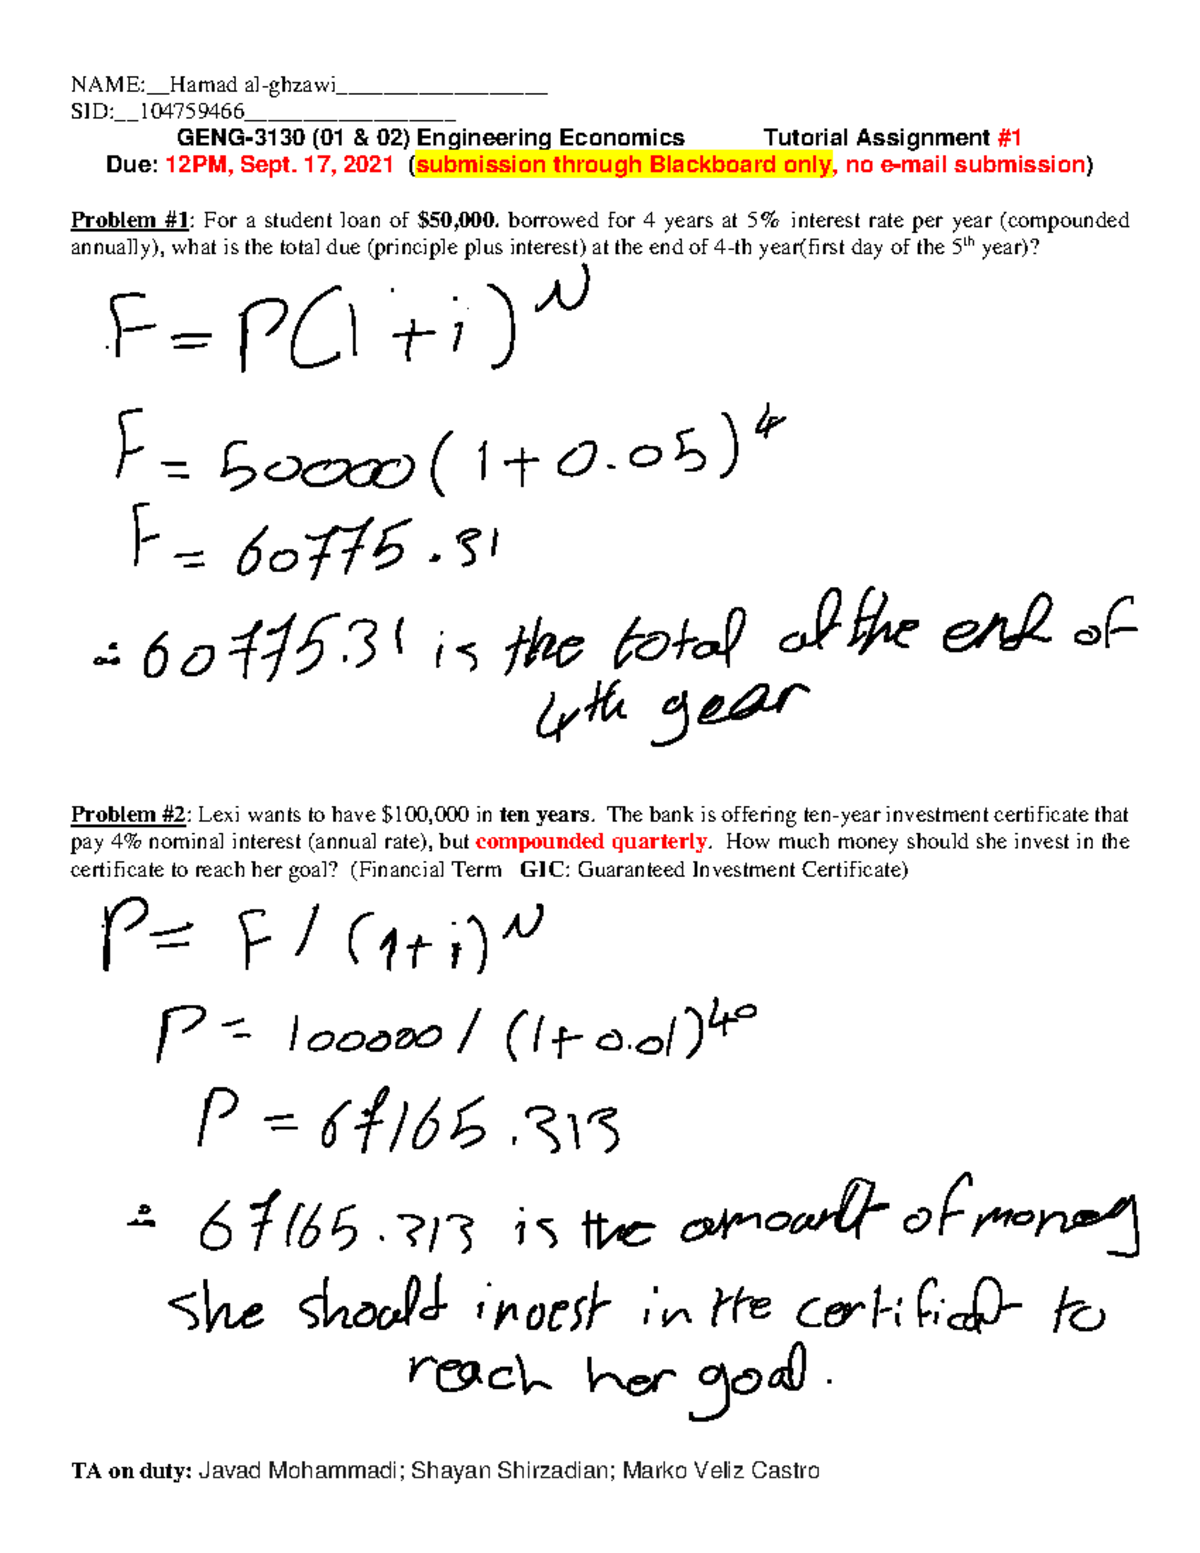 NAME:__Hamad al-ghzawi__________________
SID:__104759466__________________
GENG-3130 (01 & 02) Engineering Economics Tutorial Assignment #1
Due: 12PM, Sept. 17, 2021 (submission through Blackboard only, no e-mail submission)
Problem #1: For a student loan of $50,000. borrowed for 4 years at 5% interest rate per year (compounded
annually), what is the total due (principle plus interest) at the end of 4-th year(first day of the 5th year)?
F = P(1+i)^N
F = 50000(1+0.05)^4
F = 60775.31
∴ 60775.31 is the total at the end of
4th year
Problem #2: Lexi wants to have $100,000 in ten years. The bank is offering ten-year investment certificate that
pay 4% nominal interest (annual rate), but compounded quarterly. How much money should she invest in the
certificate to reach her goal? (Financial Term GIC: Guaranteed Investment Certificate)
P = F / (1+i)^N
P = 100000 / (1+0.01)^40
P = 67165.313
∴ 67165.313 is the amount of money
she should invest in the certificat to
reach her goal.
TA on duty: Javad Mohammadi; Shayan Shirzadian; Marko Veliz Castro